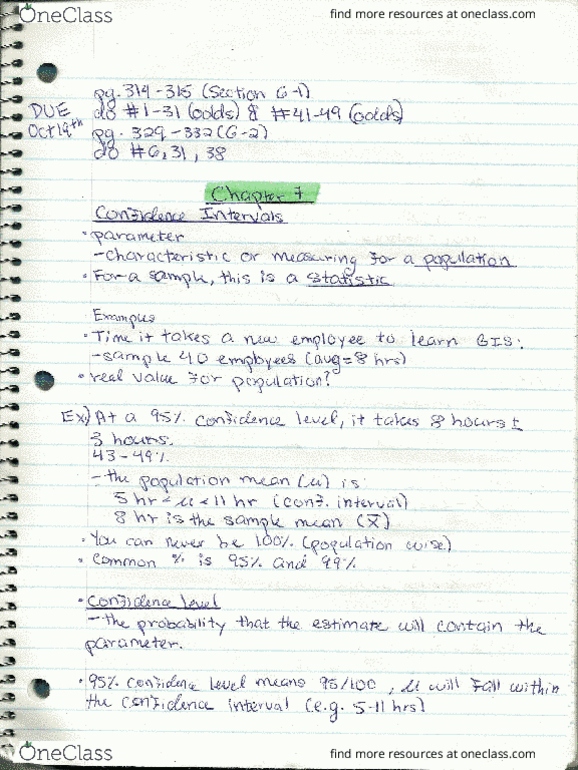 OneClass
find more resources at oneclass.com
pg. 314-315 (Section 6-1)
DUE do #1-31 (odds) & #41-49 (odds)
Oct 19th pg. 329-332 (6-2)
do #6, 31, 38
Chapter 7
Confidence Intervals
• parameter
- characteristic or measuring for a population
• For a sample, this is a statistic
Examples
• Time it takes a new employee to learn GIS:
- sample 40 employees (avg = 8 hrs)
• real value for population?
Ex) At a 95% confidence level, it takes 8 hours ±
3 hours.
43-49%
- the population mean (μ) is:
5 hr < μ < 11 hr (conf. interval)
8 hr is the sample mean (x̄)
• You can never be 100% (population wise)
• Common % is 95% and 99%
• Confidence level
- the probability that the estimate will contain the
parameter.
• 95% confidence level means 95/100, μ will fall within
the confidence interval (e.g. 5-11 hrs)
OneClass
find more resources at oneclass.com